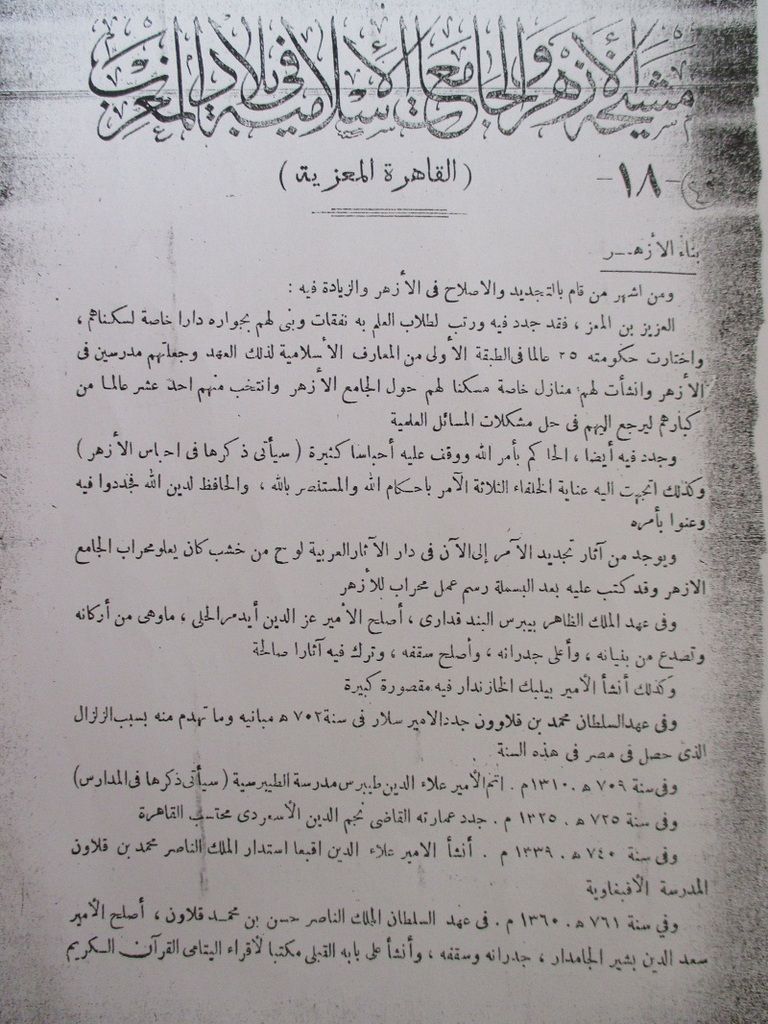 مشيخة الأزهر والجامعات الإسلامية في بلاد المغرب
(القاهرة المعزية)
-١٨-
بناء الأزهـر
ومن اشهر من قام بالتجديد والاصلاح فى الأزهر والزيادة فيه :
العزيز بن المعز ، فقد جدد فيه ورتب لطلاب العلم به نفقات وبنى لهم بجواره دارا خاصة لسكناهم ،
واختارت حكومته ٣٥ عالما فى الطبقة الأولى من المعارف الأسلامية لذلك العهد وجعلتهم مدرسين فى
الأزهر وانشأت لهم منازل خاصة مسكنا لهم حول الجامع الأزهر وانتخب منهم احد عشر عالما من
كبارهم ليرجع اليهم فى حل مشكلات المسائل العلمية
وجدد فيه أيضا ، الحاكم بأمر الله ووقف عليه أحباسا كثيرة (سيأتى ذكرها فى احباس الأزهر)
وكذلك اتجهت اليه عناية الخلفاء الثلاثة الآمر باحكام الله والمستنصر بالله ، والحافظ لدين الله فجددوا فيه
وعنوا بأمره
ويوجد من آثار تجديد الآمر إلى الآن فى دار الآثار العربية لوح من خشب كان يعلو محراب الجامع
الازهر وقد كتب عليه بعد البسملة رسم عمل محراب للأزهر
وفى عهد الملك الظاهر بيبرس البند قدارى ، أصلح الأمير عز الدين أيدمر الحلى ، ماوهى من أركانه
وتصدع من بنيانه ، وأعلى جدرانه ، وأصلح سقفه ، وترك فيه آثارا صالحة
وكذلك أنشأ الأمير بيلبك الخازندار فيه مقصورة كبيرة
وفى عهد السلطان محمد بن قلاوون جدد الامير سلار فى سنة ٧٠٢ ه مبانيه وما تهدم منه بسبب الزلزال
الذى حصل فى مصر فى هذه السنة
وفى سنة ٧٠٩ ه . ١٣١٠ م . اتم الأمير علاء الدين طيبرس مدرسة الطيبرسية (سيأتى ذكرها فى المدارس)
وفى سنة ٧٢٥ ه . ١٣٢٥ م . جدد عمارته القاضى نجم الدين الأسعردى محتسب القاهرة
وفى سنة ٧٤٠ ه . ١٣٣٩ م . أنشأ الامير علاء الدين اقبغا استدار الملك الناصر محمد بن قلاون
المدرسة الأقبغاوية
وفي سنة ٧٦١ ه . ١٣٦٠ م . فى عهد السلطان الملك الناصر حسن بن محمد قلاون ، أصلح الأمير
سعد الدين بشير الجامدار ، جدرانه وسقفه ، وأنشأ على بابه القبلى مكتبا لأقراء اليتامى القرآن الكريم